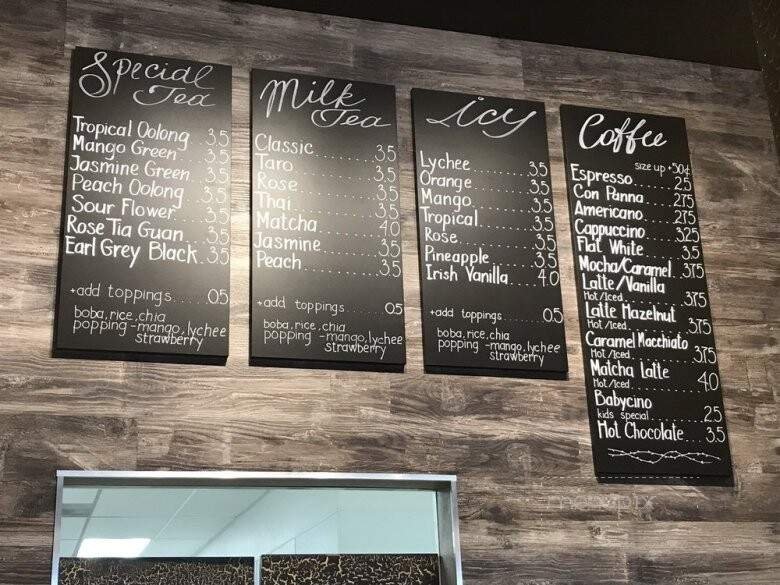 Special
Tea
Tropical Oolong 3.5
Mango Green 3.5
Jasmine Green 3.5
Peach Oolong 3.5
Sour Flower 3.5
Rose Tia Guan 3.5
Earl Grey Black 3.5
+add toppings 0.5
boba, rice, chia
popping -mango, lychee
strawberry
Milk
Tea
Classic 3.5
Taro 3.5
Rose 3.5
Thai 3.5
Matcha 4.0
Jasmine 3.5
Peach 3.5
+add toppings 0.5
boba, rice, chia
popping -mango, lychee
strawberry
icy
Lychee 3.5
Orange 3.5
Mango 3.5
Tropical 3.5
Rose 3.5
Pineapple 3.5
Irish Vanilla 4.0
+add toppings 0.5
boba, rice, chia
popping -mango, lychee
strawberry
Coffee
size up +50¢
Espresso 2.5
Con Panna 2.75
Americano 2.75
Cappuccino 3.25
Flat White 3.5
Mocha/Caramel 3.75
Latte/Vanilla
Hot/Iced 3.75
Latte Hazelnut
Hot/Iced 3.75
Caramel Macchiato
Hot/Iced 3.75
Matcha Latte
Hot/Iced 4.0
Babycino
kids special 2.5
Hot Chocolate 3.5